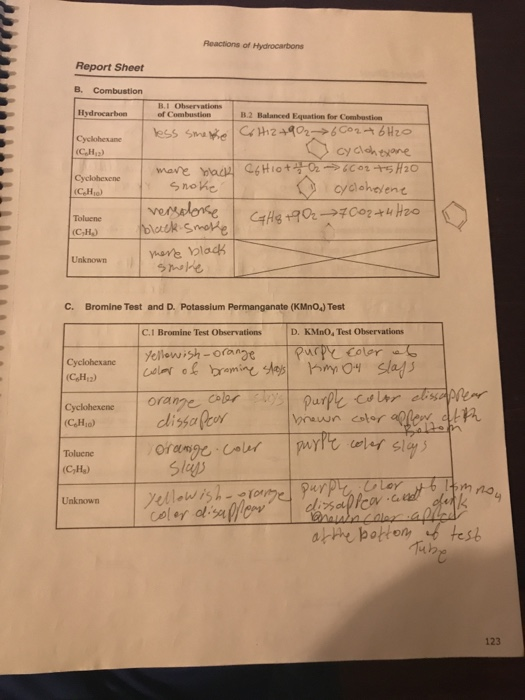 Reactions of Hydrocarbons
Report Sheet
B. Combustion
Hydrocarbon
B.1 Observations of Combustion
B.2 Balanced Equation for Combustion
Cyclohexane (C₆H₁₂)
less smoke
C6H12+9O2→6CO2+6H2O
cyclohexane
Cyclohexene (C₆H₁₀)
more black
smoke
C6H10+ O2→6CO2+5H2O
cyclohexene
Toluene (C₇H₈)
black smoke
C7H8+9O2→7CO2+4H2O
Unknown
more black
smoke
C. Bromine Test and D. Potassium Permanganate (KMnO₄) Test
C.1 Bromine Test Observations
D. KMnO₄ Test Observations
Cyclohexane (C₆H₁₂)
Yellowish-orange
color of bromine stays
purple color of
KmnO4 stays
Cyclohexene (C₆H₁₀)
orange color
dissapear
purple color dissappear
brown color appear at th
Bottom
Toluene (C₇H₈)
orange color
stays
purple color stays
Unknown
Yellowish-orange
color disappear
purple color of Kmno4
dissappear and dark
brown color appear
at the bottom of test
Tube
123